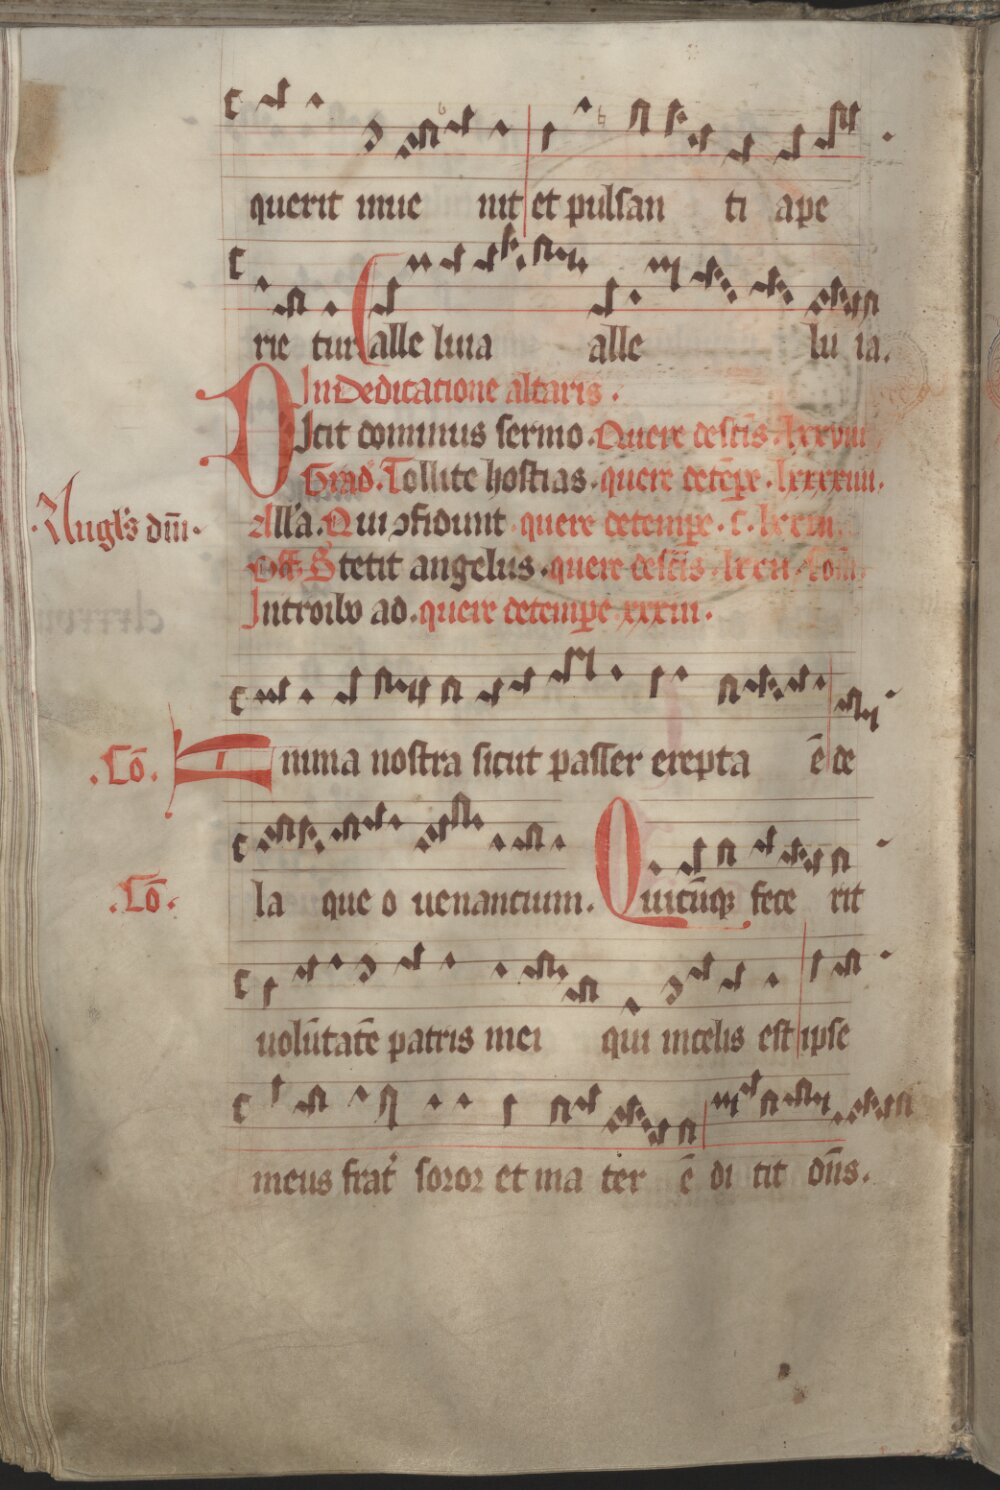 querit inue nit et pulsan ti ape
rie tur alle luia alle lu ia.
In dedicatione altaris.
Dicit dominus sermo. Quere de sc̄is. lxxviii
Grad. Tollite hostias. quere de tēpe. lxxxxiiii.
All'a. Qui ↄfidunt quere de tempe. c.
Angl's dm̄.
Off. Stetit angelus. quere de sc̄is. lxcii. Com̄
Introibo ad. quere de tempe xxxiii.
.Cō. Anima nostra sicut passer erepta ē de
la que o uenantium. Quicūq; fece rit
.Cō.
uolūtatē patris mei qui in celis est ipse
meus frat' soror et ma ter ē di cit dn̄s.